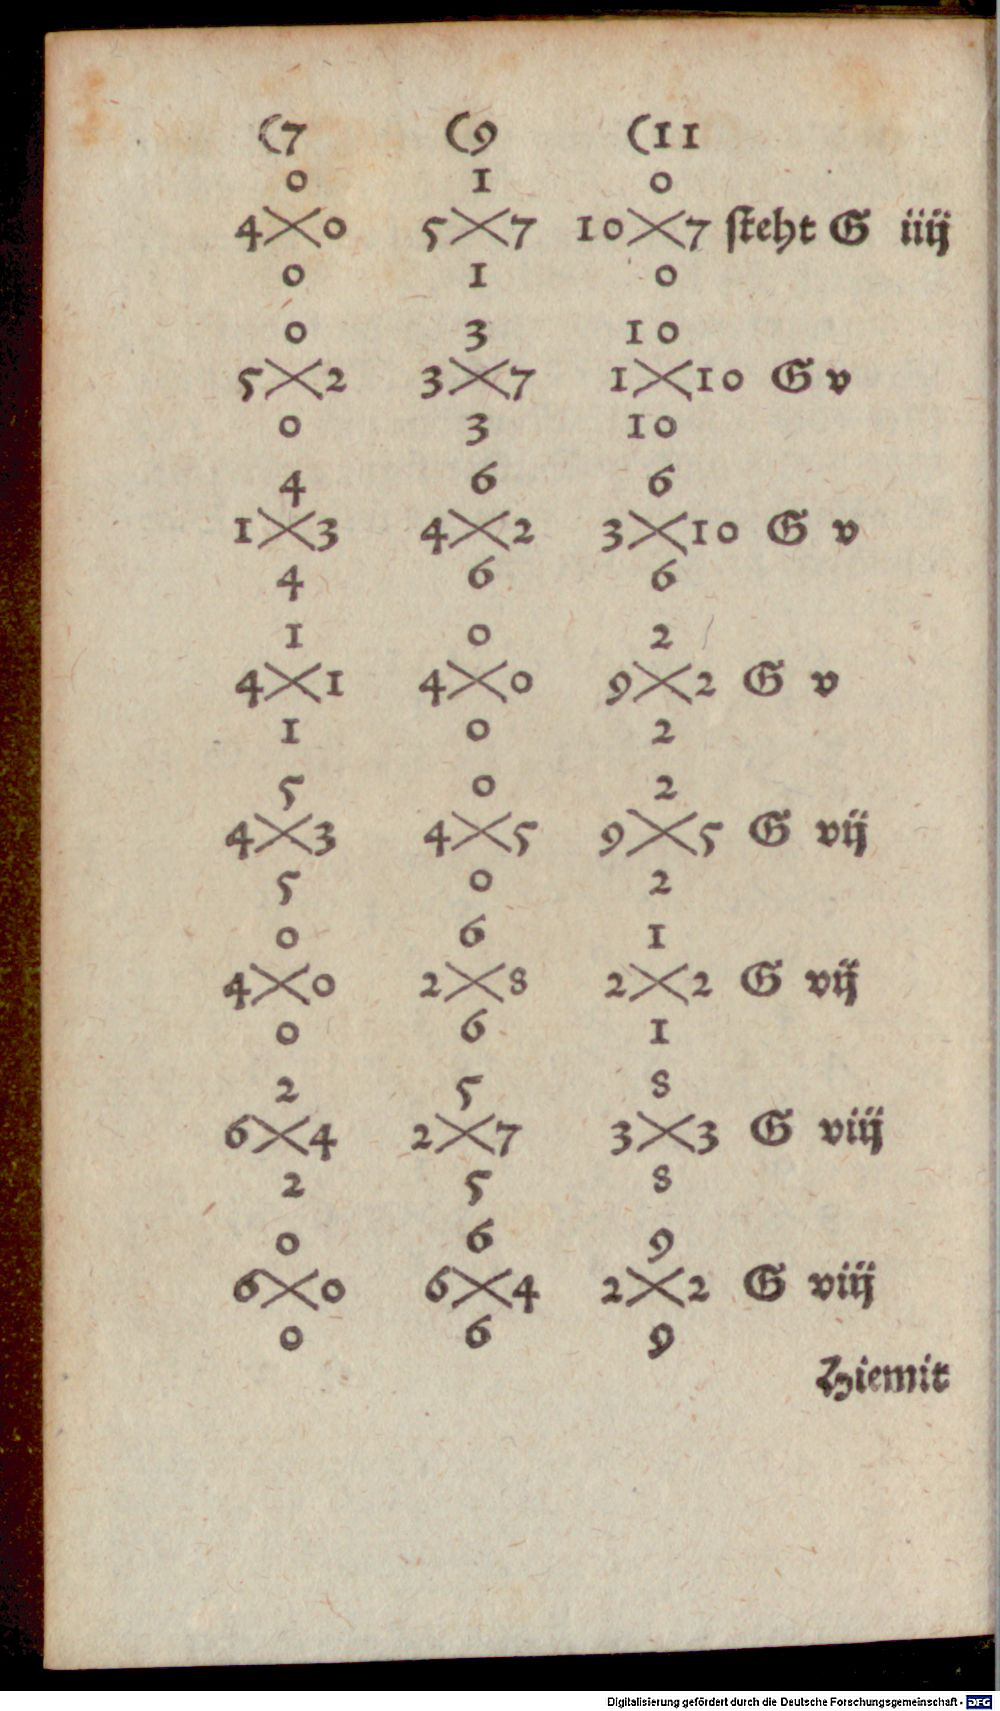 (7 (9 (11
0 1 0
4 0 5 7 10 7 steht G iiij
0 1 0
0 3 10
5 2 3 7 1 10 G v
0 3 10
4 6 6
1 3 4 2 3 10 G v
4 6 6
1 0 2
4 1 4 0 9 2 G v
1 0 2
5 0 2
4 3 4 5 9 5 G vij
5 0 2
0 6 1
4 0 2 8 2 2 G vij
0 6 1
2 5 8
6 4 2 7 3 3 G viij
2 5 8
0 6 9
6 0 6 4 2 2 G viij
0 6 9
Hiemit
Digitalisierung gefördert durch die Deutsche Forschungsgemeinschaft - DFG